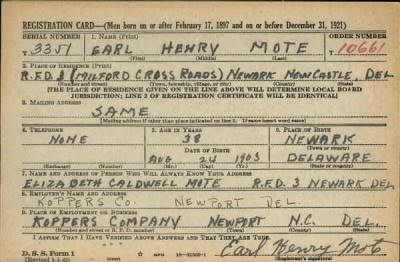 REGISTRATION CARD—(Men born on or after February 17, 1897 and on or before December 31, 1921)
SERIAL NUMBER 1. NAME (Print) ORDER NUMBER
T 3351 EARL HENRY MOTE T 10661
(First) (Middle) (Last)
2. PLACE OF RESIDENCE (Print)
R.F.D. 3 (MILFORD CROSS ROADS) NEWARK NEWCASTLE, DEL
(Number and street) (Town, township, village, or city) (County) (State)
[THE PLACE OF RESIDENCE GIVEN ON THE LINE ABOVE WILL DETERMINE LOCAL BOARD
JURISDICTION; LINE 2 OF REGISTRATION CERTIFICATE WILL BE IDENTICAL]
3. MAILING ADDRESS
SAME
[Mailing address if other than place indicated on line 2. If same insert word same]
4. TELEPHONE 5. AGE IN YEARS 6. PLACE OF BIRTH
NONE 38 NEWARK
DATE OF BIRTH (Town or county)
AUG 24 1903 DELAWARE
(Exchange) (Number) (Mo.) (Day) (Yr.) (State or country)
7. NAME AND ADDRESS OF PERSON WHO WILL ALWAYS KNOW YOUR ADDRESS
ELIZABETH CALDWELL MOTE R.F.D. 3 NEWARK DEL
8. EMPLOYER'S NAME AND ADDRESS
KOPPERS CO. NEWPORT DEL.
9. PLACE OF EMPLOYMENT OR BUSINESS
KOPPERS COMPANY NEWPORT N.C. DEL.
(Number and street or R. F. D. number) (Town) (County) (State)
I AFFIRM THAT I HAVE VERIFIED ABOVE ANSWERS AND THAT THEY ARE TRUE.
D. S. S. Form 1 Earl Henry Mote